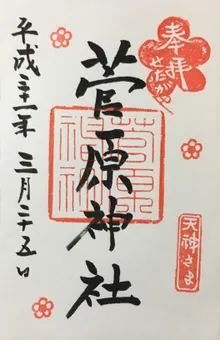 奉拝
せたがや
菅原神社
菅原神社
天神さま
平成三十一年 三月二十五日